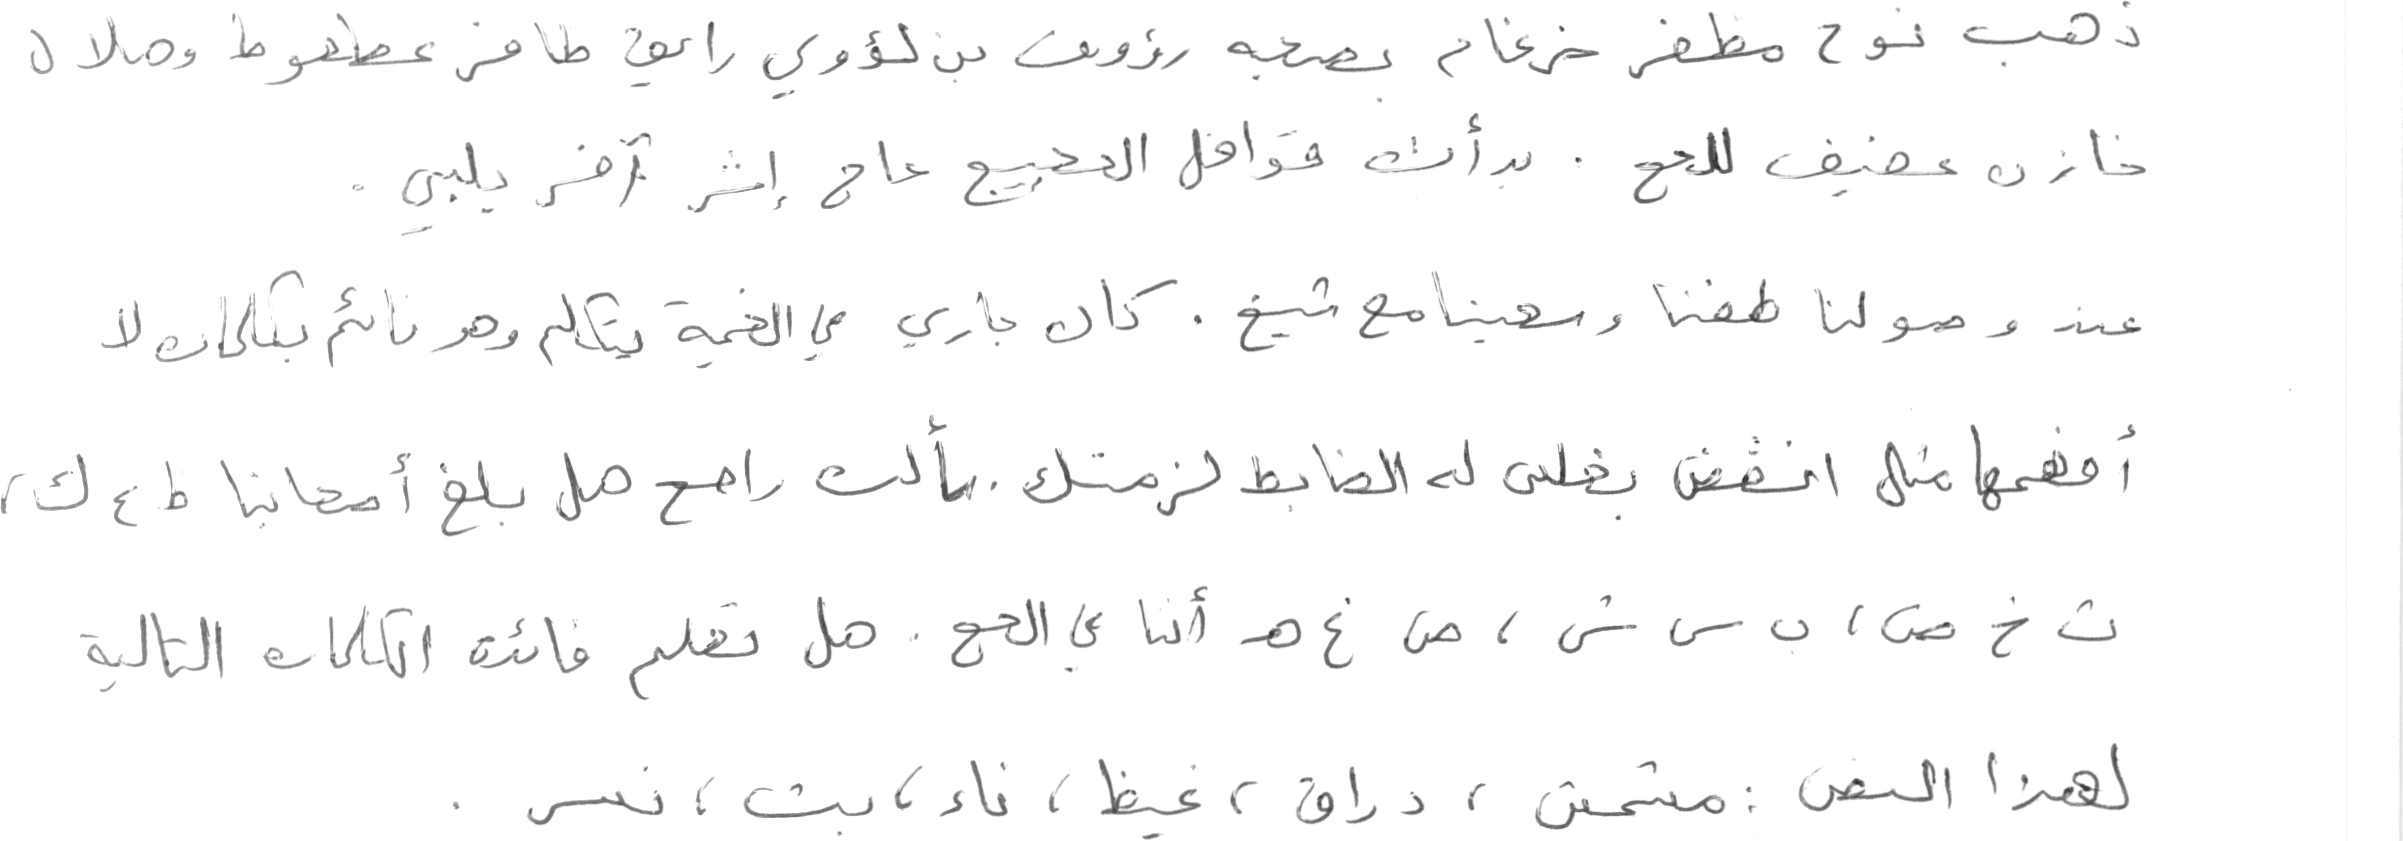 ذهب نوح مظفر ضرغام بصحبه رؤوف بن لؤوي رايق ظافر عطعوط وهلال
خازن عفيف للحج . بدأت قوافل الحجيج حاج إثر آخر يلبي .
عند وصولنا طفنا وسعينا مع شيخ . كان جاري في الخيمة يتكلم وهو نائم بكلمات لا
أفهمها مثل انقض بغلس له الضابط لزمتك . سألت راجح هل بلغ أصحابنا ط ع ك ،
ث خ ص ، ب س ش ، ض غ هـ أننا في الحج . هل تعلم فائدة الكلمات التالية
لهذا النص : مشمش ، دراق ، غيظ ، ناء ، بث ، نفس .